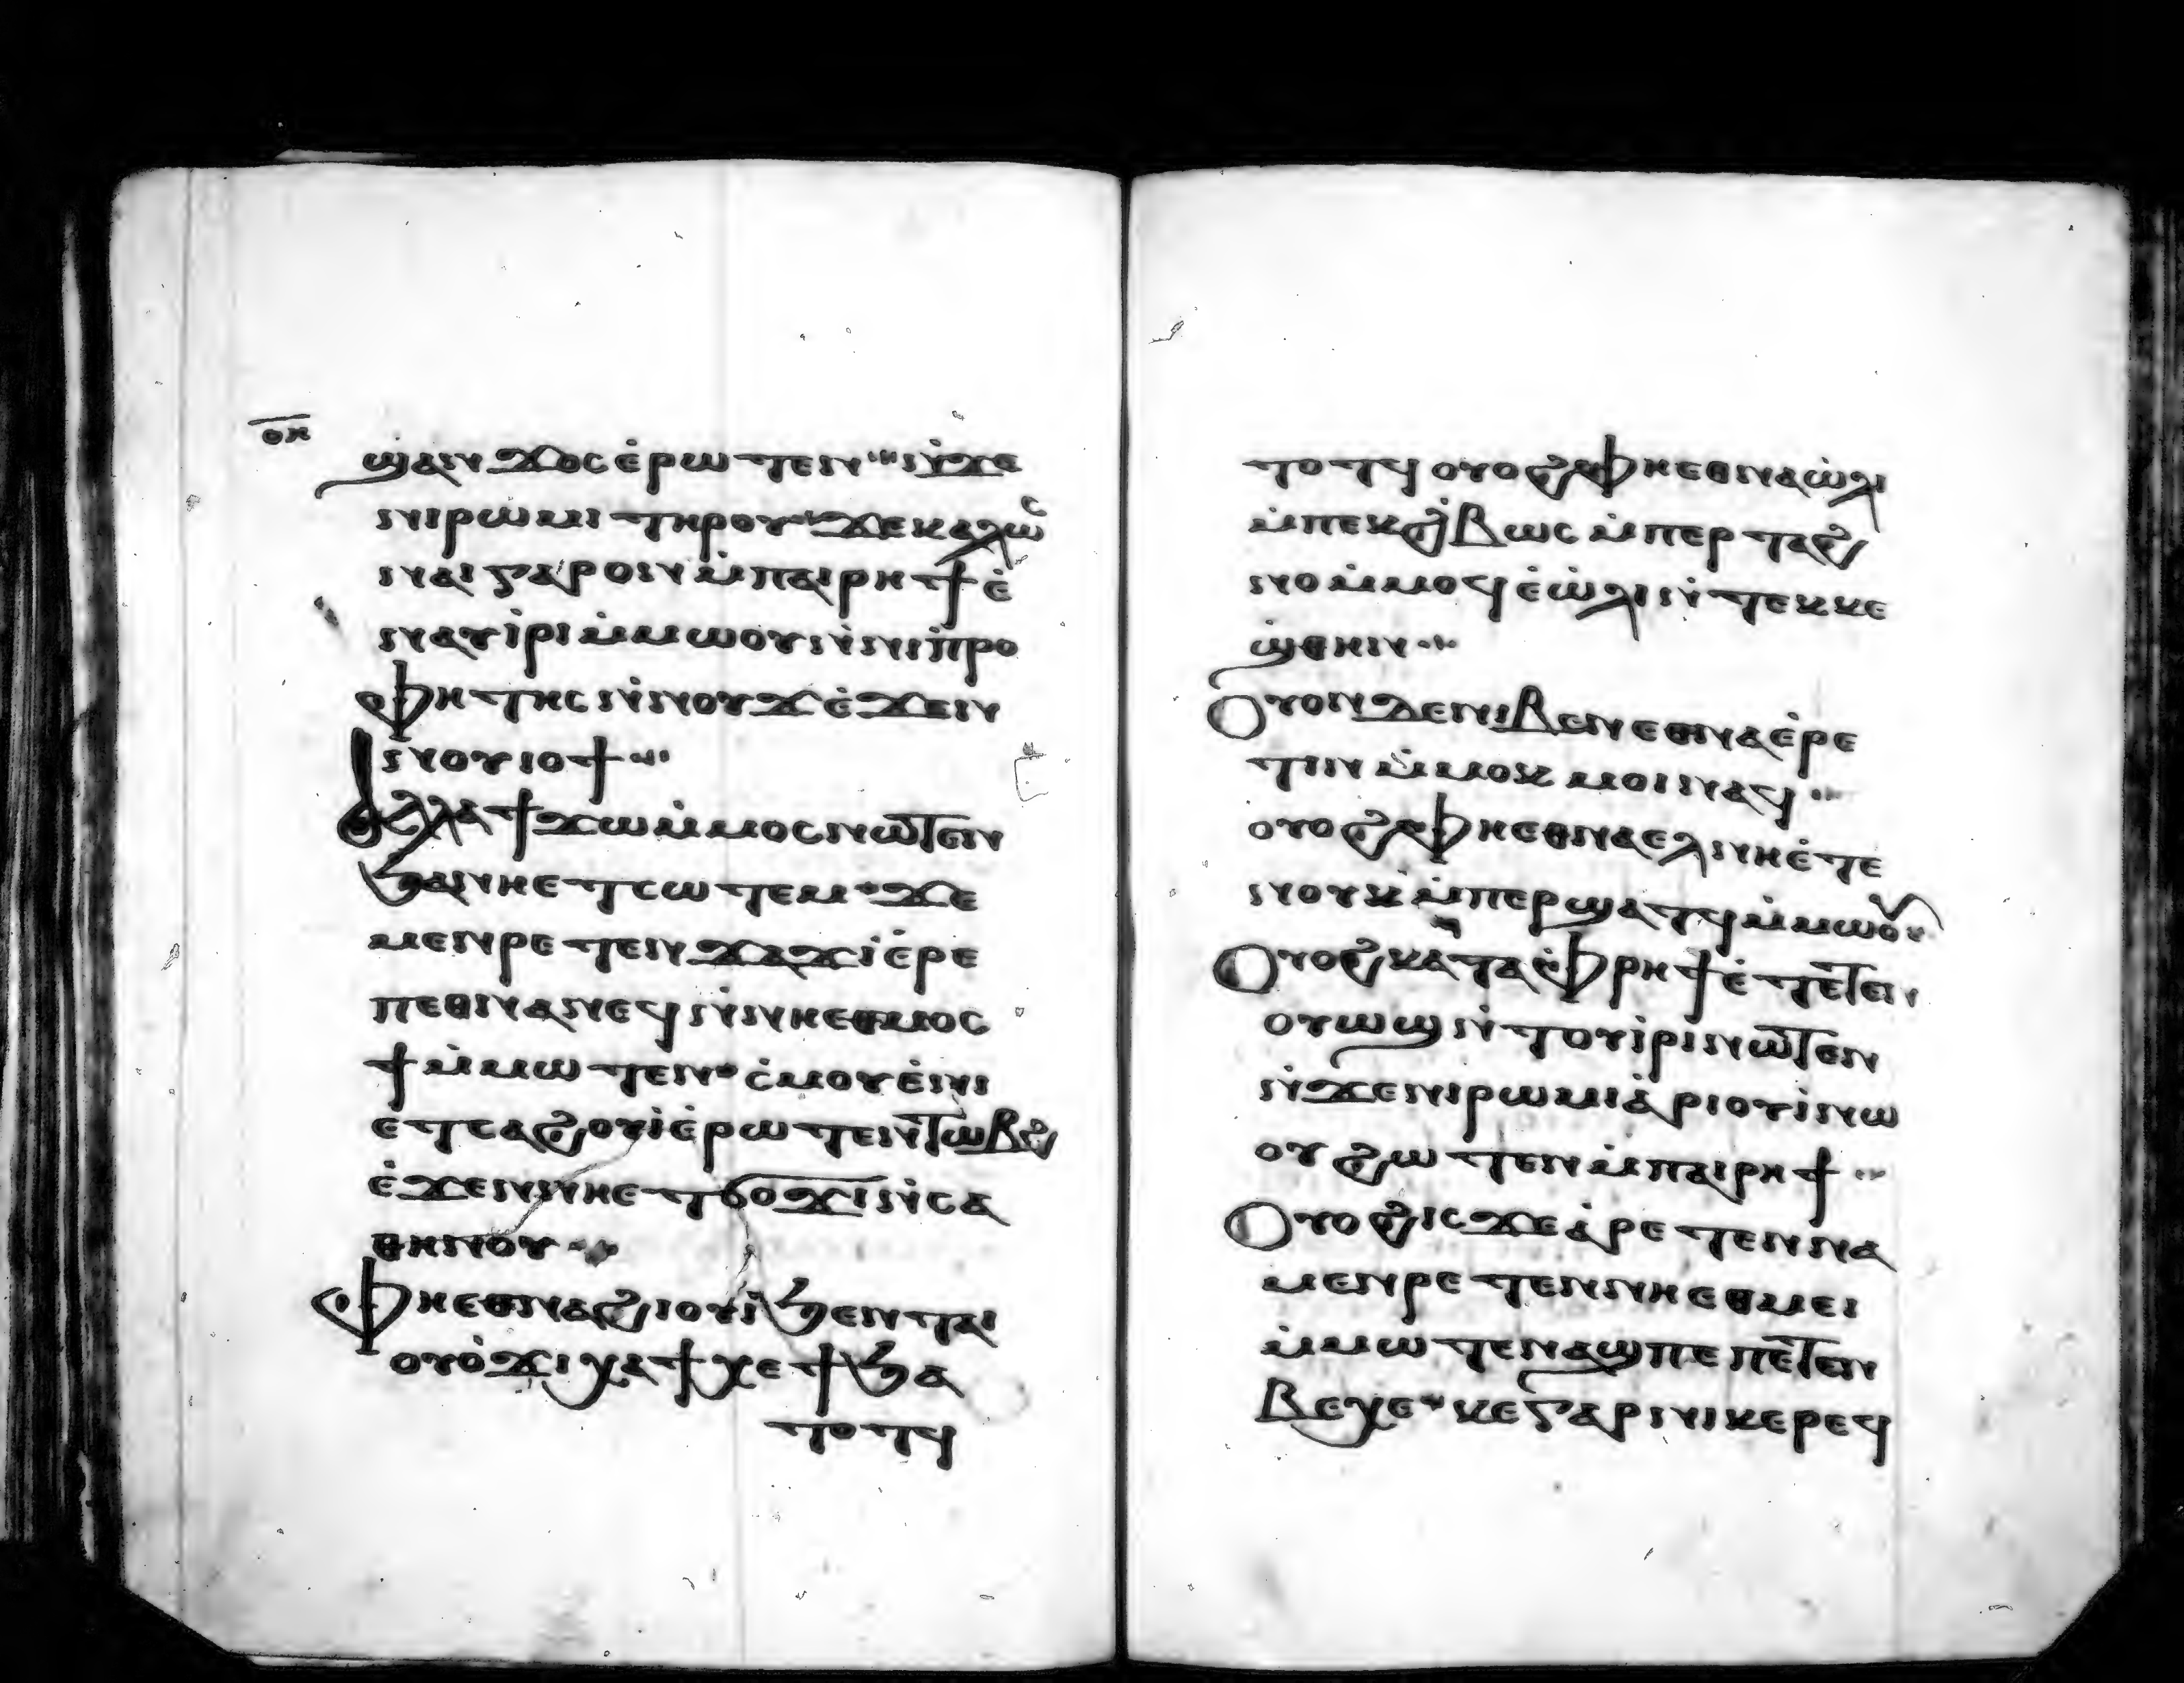 ⲟⲏ
ϣⲁⲛϫⲟⲥ ⲉ̇ⲣⲱⲧⲉⲛ ⲛ̇ϫⲉ
ⲛⲓⲣⲱⲙⲓ ⲧⲏⲣⲟⲩ ϫⲉ ⲕⲁⲗⲱⲥ
ⲛⲁⲓ ⲅⲁⲣ ⲟⲛ ⲙ̇ⲡⲁⲓⲣⲏϯ ⲉ̇
ⲛⲁⲩⲓ̇ⲣⲓ ⲙ̇ⲙⲱⲟⲩ ⲛ̇ⲛⲓⲡ̇ⲣⲟ
ⲫⲏⲧⲏⲥ ⲛ̇ⲛⲟⲩϫ ⲉ̇ϫⲉⲛ
ⲛⲟⲩⲓⲟϯ
ⲁⲗⲗⲁ ϯϫⲱ ⲙ̇ⲙⲟⲥ ⲛⲱⲧⲉⲛ
ϧⲁ ⲛⲏⲉⲧⲥⲱⲧⲉⲙ ϫⲉ
ⲙⲉⲛⲣⲉ ⲛⲉⲧⲉⲛϫⲁϫⲓ ⲉ̇ⲣⲉ
ⲡⲉⲑⲛⲁⲛⲉϥ ⲛ̇ⲛⲏⲉⲑⲙⲟⲥ
ϯ ⲙ̇ⲙⲱⲧⲉⲛ ⲥ̇ⲙⲟⲩ ⲉ̇ⲛⲏ
ⲉⲧⲥⲁϩⲟⲩⲓ̇ ⲉ̇ⲣⲱⲧⲉⲛ ⲧⲱⲃϩ
ⲉ̇ϫⲉⲛ ⲛⲏⲉⲧϭⲟϫⲓ ⲛ̇ⲥⲁ
ⲑⲏⲛⲟⲩ
ⲫⲏⲉⲑⲛⲁϩⲓⲟⲩⲓ̇ ϧⲉⲛ ⲧⲁⲓ
ⲟⲩⲟ̇ϫⲓ ⲭⲁ ϯⲭⲉϯ ϧⲁ
ⲧⲟⲧϥ
ⲧⲟⲧϥ ⲟⲩⲟϩ ⲫⲏⲉⲑⲛⲁⲱ̇ⲗⲓ
ⲙ̇ⲡⲉⲕϩ̇ⲃⲱⲥ ⲙ̇ⲡⲉⲣⲧⲁϩ
ⲛⲟ ⲙ̇ⲙⲟϥ ⲉ̇ⲱ̇ⲗⲓ ⲛ̇ⲧⲉⲕⲕⲉ
ϣ̇ⲑⲏⲛ
ⲟⲩⲟⲛ ⲇⲉ ⲛⲓⲃⲉⲛ ⲉⲑⲛⲁⲉ̇ⲣⲉ
ⲧⲓⲛ ⲙ̇ⲙⲟⲕ ⲙⲟⲓ ⲛⲁϥ
ⲟⲩⲟϩ ⲫⲏⲉⲑⲛⲁⲉⲗ ⲛⲏⲉ̇ⲧⲉ
ⲛⲟⲩⲕ ⲙ̇ⲡⲉⲣϣⲁⲧϥ ⲙ̇ⲙⲱⲟⲩ
ⲟⲩⲟϩ ⲕⲁⲧⲁ ⲫ̇ⲣⲏϯ ⲉ̇ⲧⲉⲧⲉⲛ
ⲟⲩⲱϣ ⲛ̇ⲧⲟⲩⲓ̇ⲣⲓ ⲛⲱⲧⲉⲛ
ⲛ̇ϫⲉ ⲛⲓⲣⲱⲙⲓ ⲁ̇ⲣⲓⲟⲩⲓ̇ ⲛⲱ
ⲟⲩ ϩⲱⲧⲉⲛ ⲙ̇ⲡⲁⲓⲣⲏϯ
ⲟⲩⲟϩ ⲓⲥϫⲉ ⲁ̇ⲣⲉⲧⲉⲛⲛⲁ
ⲙⲉⲛⲣⲉ ⲧⲉⲛ ⲛⲏⲉⲑⲙⲉⲓ
ⲙ̇ⲙⲱⲧⲉⲛ ⲁϣ ⲡⲉ ⲡⲉⲧⲉⲛ
ⲃⲉⲭⲉ ⲕⲉ ⲅⲁⲣ ⲛⲓⲕⲉⲣⲉϥ